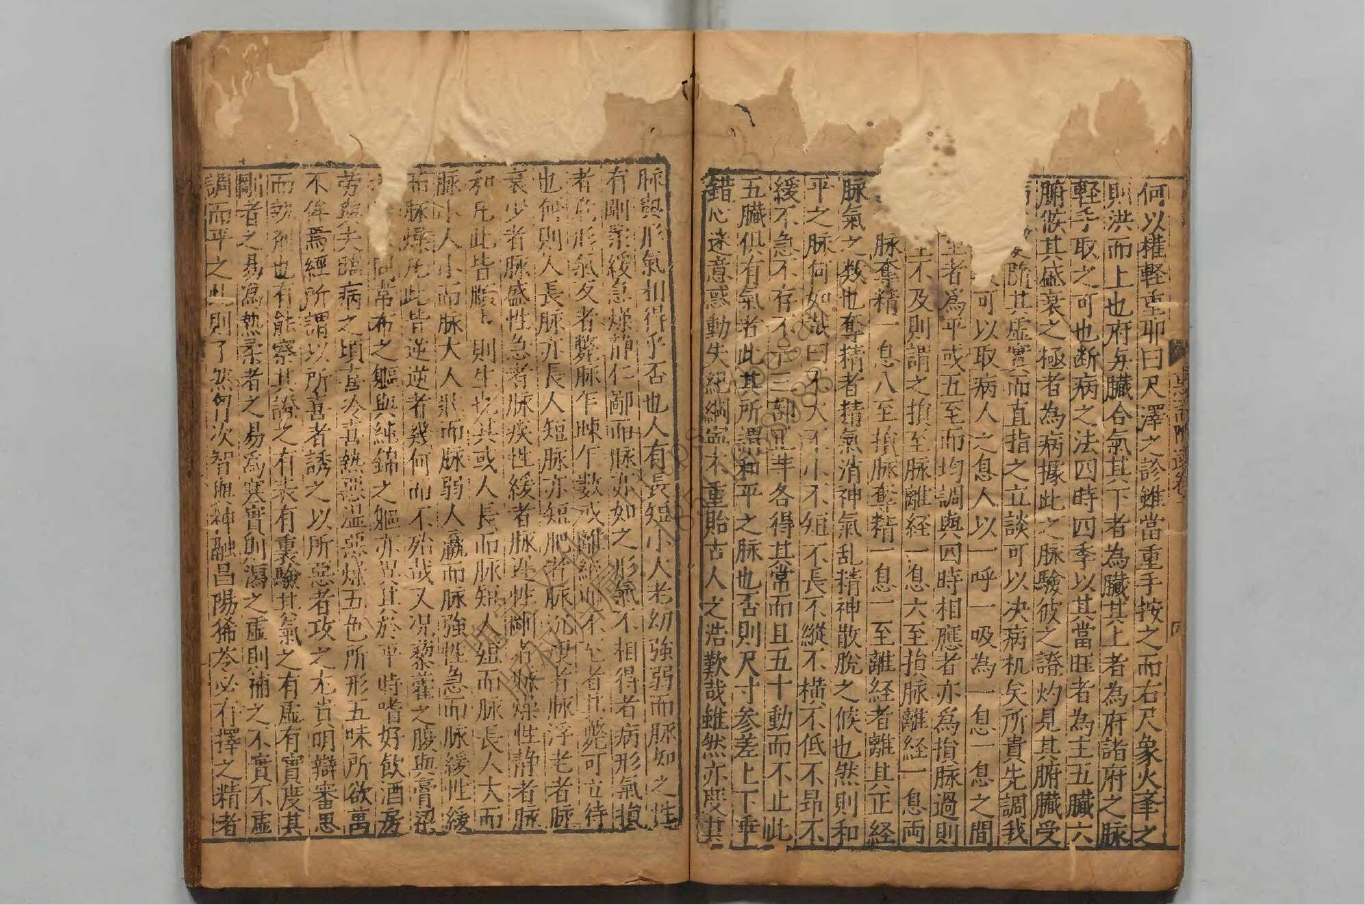 何以權輕重耶曰尺澤之診雖當重手按之而右尺象火筆之
則洪而上也府與臟合氣其下者為臟其上者為府諸府之脉
輕手取之可也断病之法四時四季以其當旺者為主五臟六
腑候其盛衰之極者為病據此之脉驗彼之證灼見其腑臟受
隨其虛實而直指之立談可以决病机矣所貴先調我
可以取病人之息人以一呼一吸為一息一息之間
至者為平或五至而均調與四時相應者亦為損脉過則
不及則謂之損至脉離經一息六至損脉離經一息両
脉奪精一息八至損脉奪精一息一至離経者離其正経
脉氣之数也奪精者精氣消神氣乱精神散脫之候也然則和
平之脉何如哉曰不大不小不短不長不縱不橫不低不昻不
緩不急不存不不三部各得其常而且五十動而不止此
五臟俱有氣者此其所謂和平之脉也否則尺寸参差上下乖
錯心迷意惑動失紀綱寧不重貽古人之浩歎哉雖然亦度其
脉與形氣相得乎否也人有長短小大老幼強弱而脉如之性
有剛柔緩急燥靜仁鄙而脉亦如之形氣不相得者病形氣損
者危形氣反者斃脉乍踈乍數或離經而不至者其斃可立待
也何則人長脉亦長人短脉亦短肥者脉沉瘦者脉浮老者脉
衰少者脉盛性急者脉疾性緩者脉遲性剛者脉燥性静者脉
和凡此皆順順則生也其或人長而脉短人短而脉長人大而
脉小人小而脉大人壯而脉弱人羸而脉強性急而脉緩性緩
而脉燥凡此皆逆逆者幾何而不殆哉又况藜藿之腹與膏粱
同常布之軀與純錦之軀亦異其於平時嗜好飲酒房
勞夫臨病之頃喜冷喜熱惡濕惡燥五色所形五味所欲萬
不侔焉經所謂以所喜者誘之以所惡者攻之尤当明辯審思
而也有能察其證之有表有裏驗其氣之有虛有實度其
剛者之易為熱柔者之易為寒實則瀉之虛則補之不實不虛
調而平之此則了然胷次智與神融昌陽豨苓必有擇之精者